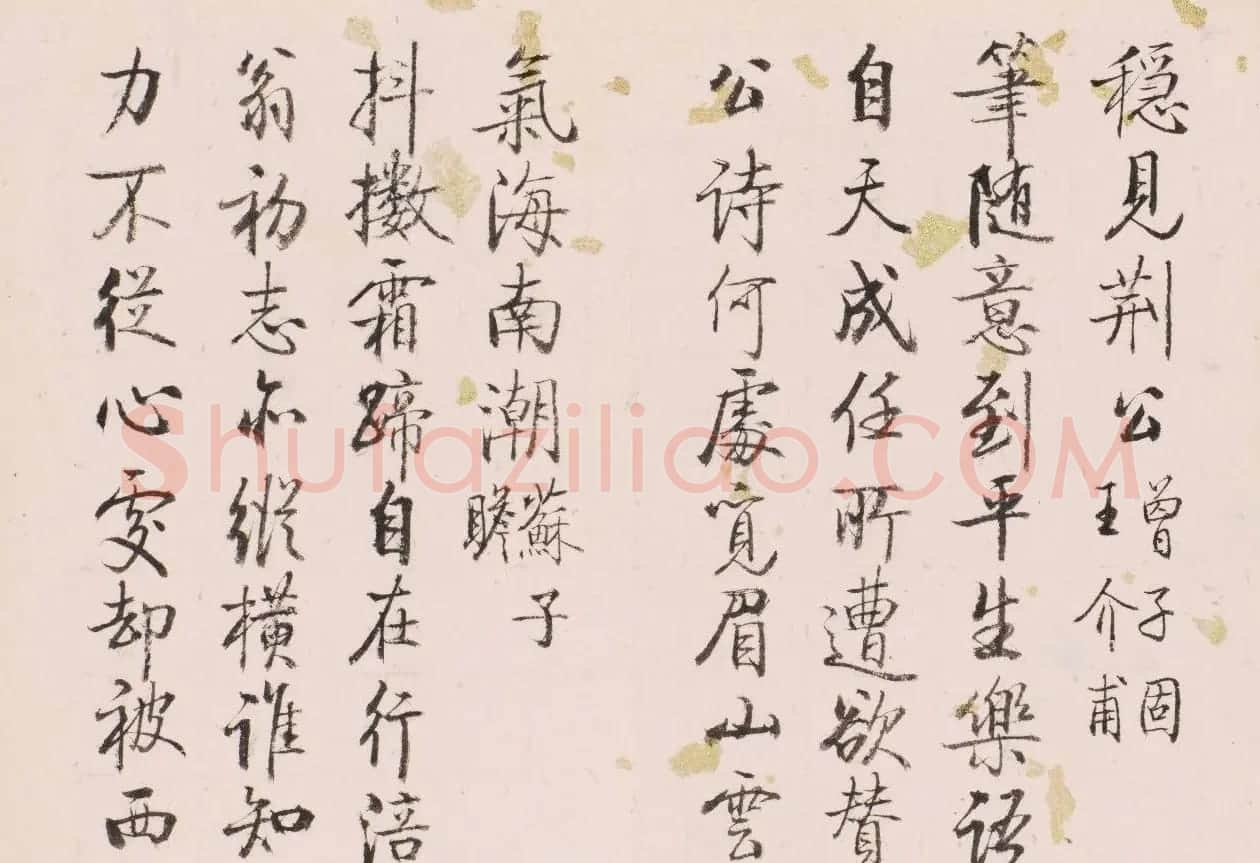 穏見荆公曾子固王介甫
筆随意到平生樂語
自天成任所遭欲賛
公诗何處覓眉山雲
氣海南潮蘇子瞻
抖擻霜蹄自在行涪
翁初志亦縱横谁知
力不從心處却被西
Shufaziliao.COM